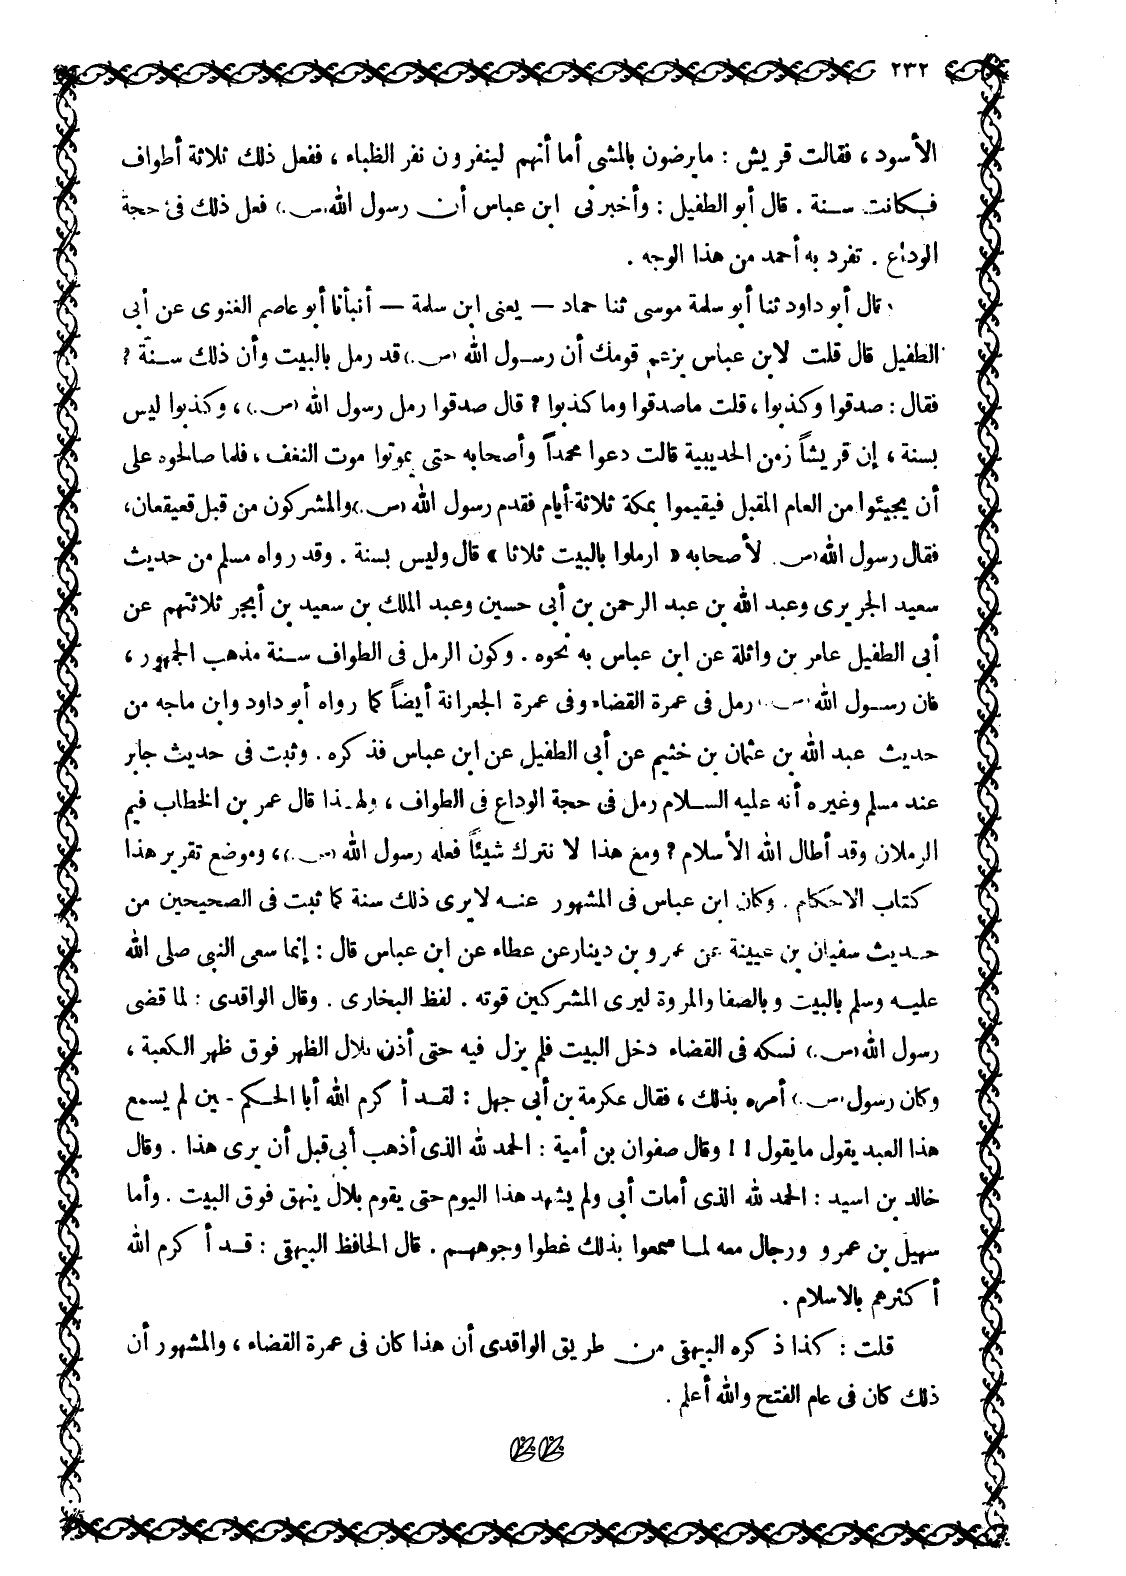 ٢٣٢
الأسود ، فقالت قريش : مايرضون بالمشى أما أنهم لينفرون نفر الظباء ، ففعل ذلك ثلاثة أطواف
فكانت سنة . قال أبو الطفيل : وأخبرنى ابن عباس أن رسول الله (ص.) فعل ذلك فى حجة
الوداع . تفرد به أحمد من هذا الوجه .
قال أبو داود ثنا أبو سلمة موسى ثنا حماد — يعنى ابن سلمة — أنبأنا أبو عاصم الغنوى عن أبى
الطفيل قال قلت لابن عباس يزعم قومك أن رسول الله (ص.) قد رمل بالبيت وأن ذلك سنة ؟
فقال : صدقوا وكذبوا ، قلت ماصدقوا وما كذبوا ؟ قال صدقوا رمل رسول الله (ص.) ، وكذبوا ليس
بسنة ، إن قريشاً زمن الحديبية قالت دعوا محمداً وأصحابه حتى يموتوا موت النغف ، فلما صالحوه على
أن يجيئوا من العام المقبل فيقيموا بمكة ثلاثة أيام فقدم رسول الله (ص.) والمشركون من قبل قعيقعان ،
فقال رسول الله (ص. لأصحابه « ارملوا بالبيت ثلاثا » قال وليس بسنة . وقد رواه مسلم من حديث
سعيد الجريرى وعبد الله بن عبد الرحمن بن أبى حسين وعبد الملك بن سعيد بن أبجر ثلاثتهم عن
أبى الطفيل عامر بن واثلة عن ابن عباس به نحوه . وكون الرمل فى الطواف سنة مذهب الجمهور ،
فان رسول الله (ص.) رمل فى عمرة القضاء وفى عمرة الجعرانة أيضاً كما رواه أبو داود وابن ماجه من
حديث عبد الله بن عثمان بن خثيم عن أبى الطفيل عن ابن عباس فذكره . وثبت فى حديث جابر
عند مسلم وغيره أنه عليه السلام رمل فى حجة الوداع فى الطواف ، ولهذا قال عمر بن الخطاب فيم
الرملان وقد أطال الله الأسلام ؟ ومع هذا لا نترك شيئاً فعله رسول الله (ص.) ، وموضع تقرير هذا
كتاب الاحكام . وكان ابن عباس فى المشهور عنه لايرى ذلك سنة كما ثبت فى الصحيحين من
حديث سفيان بن عيينة عن عمرو بن دينار عن عطاء عن ابن عباس قال : إنما سعى النبى صلى الله
عليه وسلم بالبيت وبالصفا والمروة ليرى المشركين قوته . لفظ البخارى . وقال الواقدى : لما قضى
رسول الله (ص.) نسكه فى القضاء دخل البيت فلم يزل فيه حتى أذن بلال الظهر فوق ظهر الكعبة ،
وكان رسول (ص.) أمره بذلك ، فقال عكرمة بن أبى جهل : لقد أكرم الله أبا الحكم - ين لم يسمع
هذا العبد يقول مايقول !! وقال صفوان بن أمية : الحمد لله الذى أذهب أبى قبل أن يرى هذا . وقال
خالد بن اسيد : الحمد لله الذى أمات أبى ولم يشهد هذا اليوم حتى يقوم بلال ينهق فوق البيت . وأما
سهيل بن عمرو ورجال معه لما سمعوا بذلك غطوا وجوههم . قال الحافظ البيهقى : قد أكرم الله
أكثرهم بالاسلام .
قلت : كذا ذكره البيهقى من طريق الواقدى أن هذا كان فى عمرة القضاء ، والمشهور أن
ذلك كان فى عام الفتح والله أعلم .